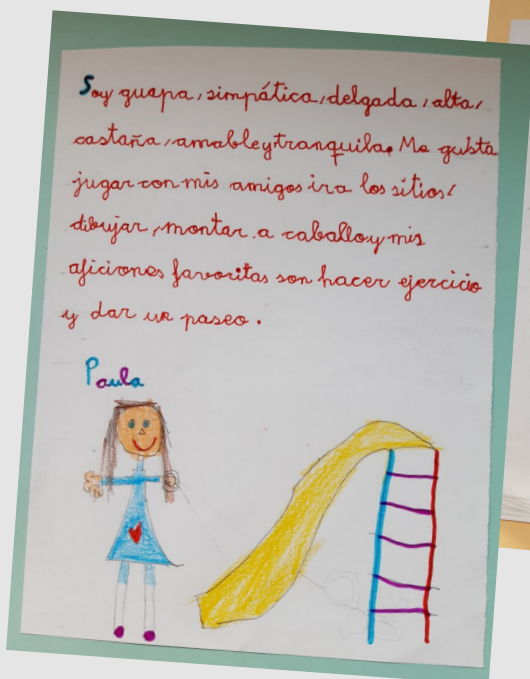 Soy guapa, simpática, delgada, alta,
castaña, amable y tranquila. Me gusta
jugar con mis amigos ir a los sitios,
dibujar, montar a caballo y mis
aficiones favoritas son hacer ejercicio
y dar un paseo.
Paula